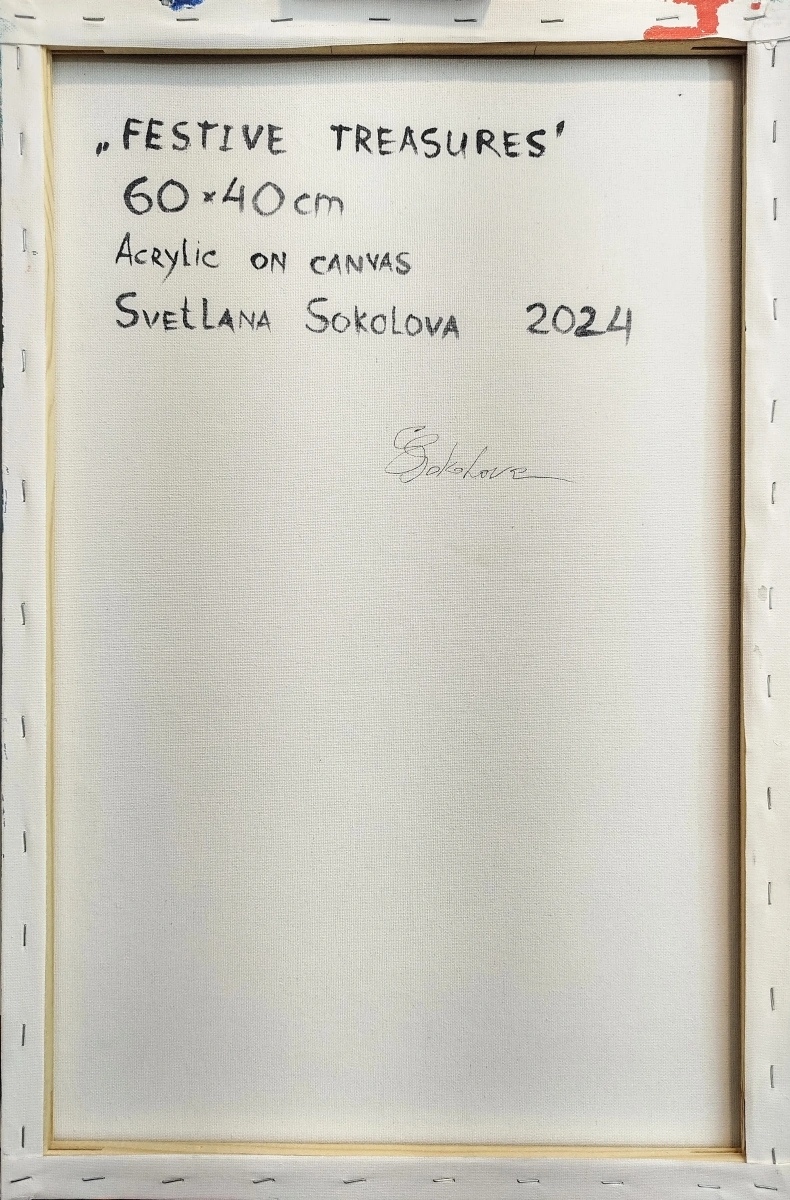 „FESTIVE TREASURES'
60×40 cm
Acrylic on canvas
Svetlana Sokolova 2024
SSokolova